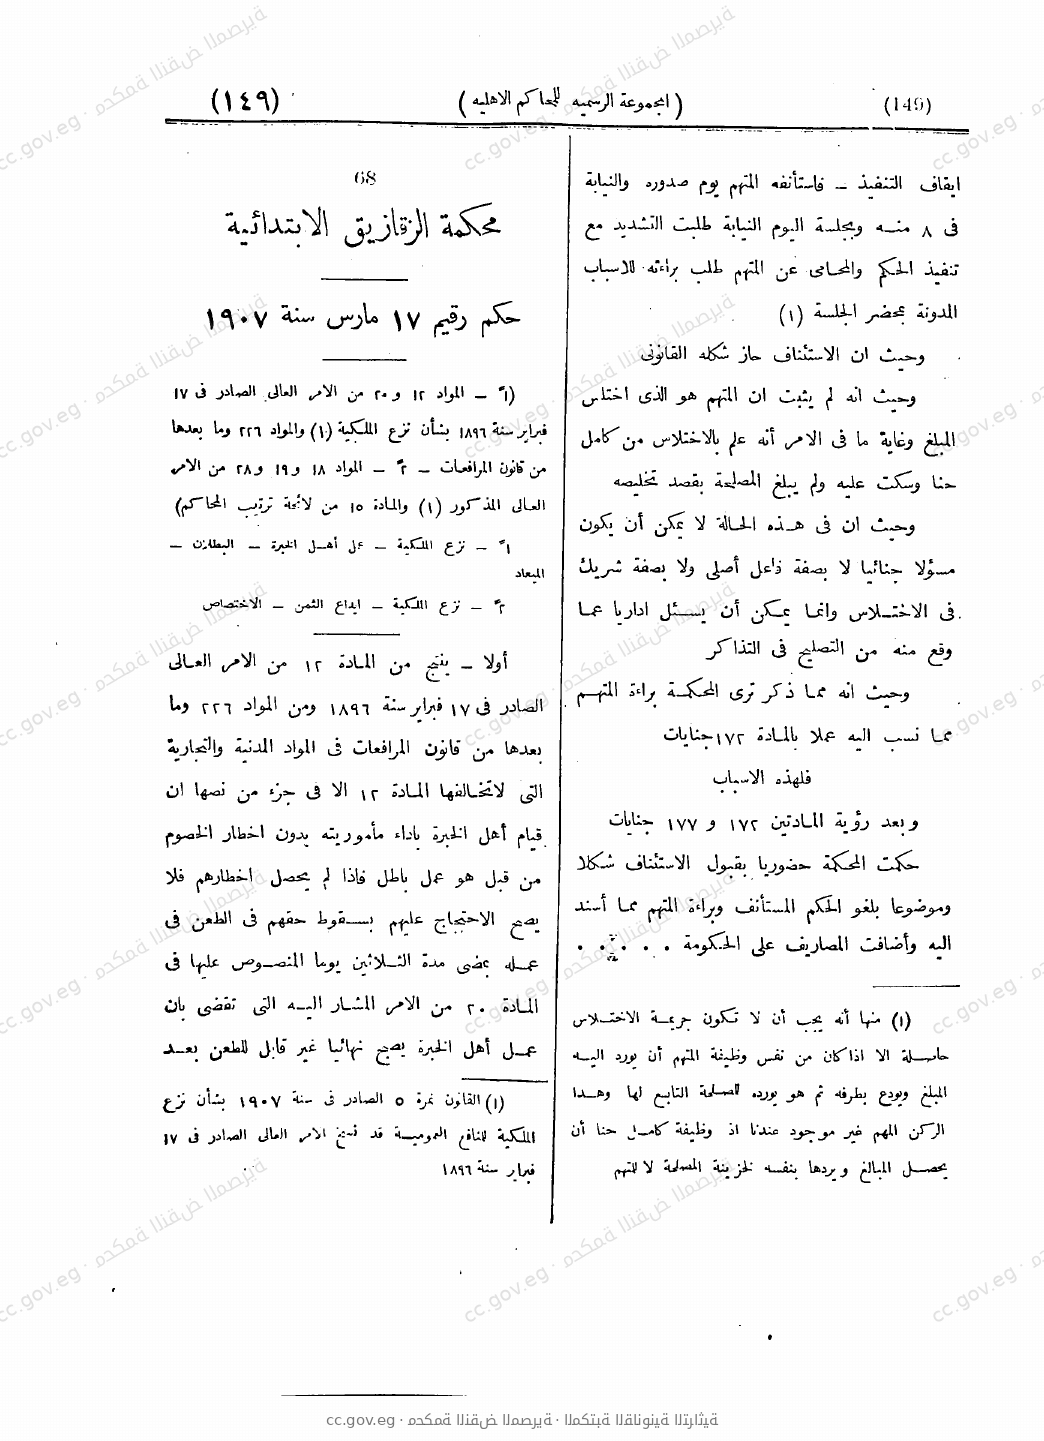 (149)
(المجموعة الرسميه للمحاكم الاهليه)
(١٤٩)
ايقاف التنفيذ – فاستأنفه المتهم يوم صدوره والنيابة
فى ٨ منـه وبجلسة اليوم النيابة طلبت التشديد مع
تنفيذ الحكم والمحامى عن المتهم طلب براءته للاسباب
المدونة بمحضر الجلسة (١)
وحيث ان الاستئناف حاز شكله القانونى
وحيث انه لم يثبت ان المتهم هو الذى اختلس
المبلغ وغاية ما فى الامر أنه علم بالاختلاس من كامل
حنا وسكت عليه ولم يبلغ المصلحة بقصد تخليصه
وحيث ان فى هـذه الحالة لا يمكن أن يكون
مسؤلا جنائيا لا بصفة فاعل أصلى ولا بصفة شريك
فى الاختـلاس وانما يمـكن أن يسـئل اداريا عما
وقع منه من التصليح فى التذاكر
وحيث انه مما ذكر ترى المحكمـة براءة المتهـم
ممـا نسب اليه عملا بالمادة ١٧٢ جنايات
فلهذه الاسباب
وبعد رؤية المـادتين ١٧٢ و ١٧٧ جنايات
حكمت المحكمة حضوريا بقبول الاستئناف شكلا
وموضوعا بلغو الحكم المستأنف وبراءة المتهم ممـا أسند
اليه وأضافت المصاريف على الحكومة
(١) منها أنه يجب أن لا تـكون جريمـة الاختـلاس
حاصـلة الا اذا كان من نفس وظيفة المتهم أن يورد اليـه
المبلغ ويودع بطرفه ثم هو يورده للمصلحة التابع لها وهـذا
الركن المهم غير موجود عندنا اذ وظيفة كامـل حنا أن
يحصـل المبالغ ويردها بنفسه لخزينة المصلحة لا للمتهم
68
محكمة الزقازيق الابتدائية
حكم رقيم ١٧ مارس سنة ١٩٠٧
(١ً – المواد ١٢ و ٢٠ من الامر العالى الصادر فى ١٧
فبراير سنة ١٨٩٦ بشأن نزع الملكية (١) والمواد ٢٢٦ وما بعدها
من قانون المرافعات – ٢ً – المواد ١٨ و ١٩ و ٢٨ من الامر
العـالى المذكور (١) والمـادة ١٥ من لائحة ترتيب المحاكم)
١ً – نزع الملكية – عمل أهـل الخبرة – البطلان –
الميعاد
٢ً – نزع الملكية – ايداع الثمن – الاختصاص
أولا – ينتج من المـادة ١٢ من الامر العـالى
الصادر فى ١٧ فبراير سنة ١٨٩٦ ومن المواد ٢٢٦ وما
بعدها من قانون المرافعات فى المواد المدنية والتجارية
التى لا تخـالفها المـادة ١٢ الا فى جزء من نصها ان
قيام أهل الخبرة باداء مأموريته بدون اخطار الخصوم
من قبل هو عمل باطل فاذا لم يحصل اخطارهم فلا
يصح الاحتجاج عليهم بسـقوط حقهم فى الطعن فى
عمـله بمضى مدة الثـلاثين يوما المنصـوص عليها فى
المـادة ٢٠ من الامر المشـار اليـه التى تقضى بان
عمـل أهل الخبرة يصبح نهائيا غير قابل للطعن بعـد
(١) القانون نمرة ٥ الصادر فى سنة ١٩٠٧ بشأن نزع
الملكية للمنافع العموميـة قد نسخ الامر العالى الصادر فى ١٧
فبراير سنة ١٨٩٦
cc.gov.eg · محكمة النقض المصرية · المكتبة القانونية التراثية